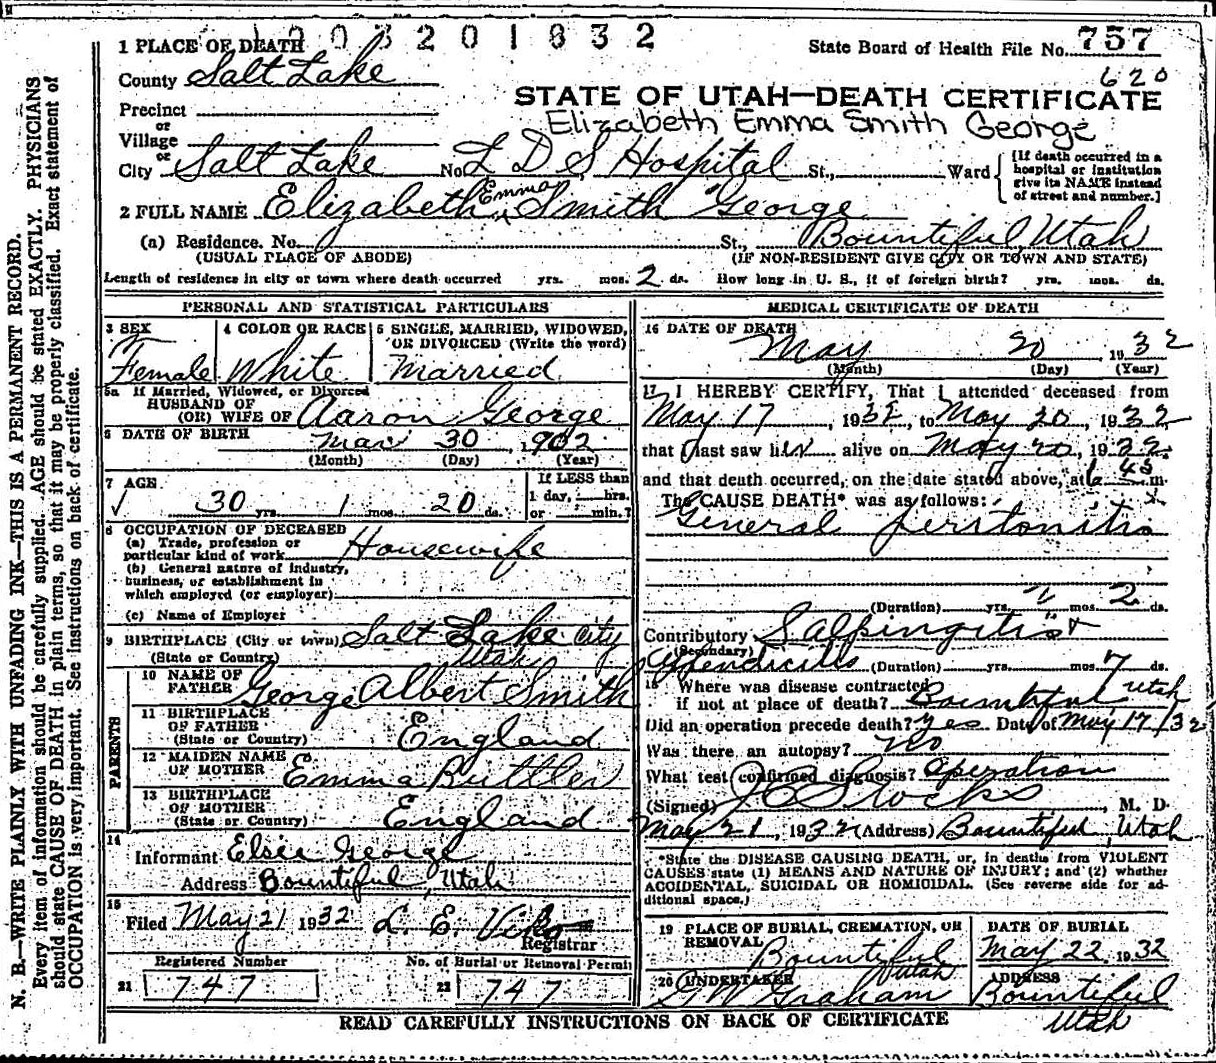 1 PLACE OF DEATH 1 0 0 3 2 0 1 0 3 2
State Board of Health File No. 757
County Salt Lake
620
STATE OF UTAH—DEATH CERTIFICATE
Precinct
Elizabeth Emma Smith George
or
Village
or
City Salt Lake No. L D S Hospital St., Ward
[If death occurred in a
hospital or institution
give its NAME instead
of street and number.]
2 FULL NAME Elizabeth Emma Smith George
(a) Residence. No. St., Bountiful, Utah
(USUAL PLACE OF ABODE) (IF NON-RESIDENT GIVE CITY OR TOWN AND STATE)
Length of residence in city or town where death occurred yrs. mos. 2 ds. How long in U. S., if of foreign birth? yrs. mos. ds.
PERSONAL AND STATISTICAL PARTICULARS
3 SEX
Female
4 COLOR OR RACE
White
5 SINGLE, MARRIED, WIDOWED,
OR DIVORCED (Write the word)
Married
5a If Married, Widowed, or Divorced
HUSBAND OF
(OR) WIFE OF Aaron George
6 DATE OF BIRTH Mar 30 1902
(Month) (Day) (Year)
7 AGE
30 yrs. 1 mos. 20 ds.
If LESS than
1 day, hrs.
or min.?
8 OCCUPATION OF DECEASED
(a) Trade, profession or
particular kind of work Housewife
(b) General nature of industry,
business, or establishment in
which employed (or employer)
(c) Name of Employer
9 BIRTHPLACE (City or town) Salt Lake City
(State or Country) Utah
PARENTS
10 NAME OF
FATHER George Albert Smith
11 BIRTHPLACE
OF FATHER
(State or Country) England
12 MAIDEN NAME
OF MOTHER Emma Buttler
13 BIRTHPLACE
OF MOTHER
(State or Country) England
14
Informant Elsie George
Address Bountiful, Utah
15
Filed May 21 1932 L. E. Viko
Registrar
Registered Number No. of Burial or Removal Permit
21 747 22 747
MEDICAL CERTIFICATE OF DEATH
16 DATE OF DEATH
May 20, 1932
(Month) (Day) (Year)
17 I HEREBY CERTIFY, That I attended deceased from
May 17, 1932, to May 20, 1932
that I last saw her alive on May 20, 1932
and that death occurred, on the date stated above, at 6 45 m.
The CAUSE DEATH* was as follows:
General peritonitis
(Duration) yrs. mos. 2 ds.
Contributory Salpingitis +
(Secondary)
Appendicitis (Duration) yrs. mos. 7 ds.
18 Where was disease contracted
if not at place of death? Bountiful Utah
Did an operation precede death? Yes Date of May 17/32
Was there an autopsy? No
What test confirmed diagnosis? Operation
(Signed) Stocks, M. D.
May 21, 1932 (Address) Bountiful, Utah
*State the DISEASE CAUSING DEATH, or, in deaths from VIOLENT
CAUSES state (1) MEANS AND NATURE OF INJURY; and (2) whether
ACCIDENTAL, SUICIDAL OR HOMICIDAL. (See reverse side for ad-
ditional space.)
19 PLACE OF BURIAL, CREMATION, OR
REMOVAL
Bountiful
Utah
DATE OF BURIAL
May 22, 1932
20 UNDERTAKER
G W Graham
ADDRESS
Bountiful
Utah
READ CAREFULLY INSTRUCTIONS ON BACK OF CERTIFICATE
N. B.—WRITE PLAINLY WITH UNFADING INK—THIS IS A PERMANENT RECORD.
Every item of information should be carefully supplied. AGE should be stated EXACTLY. PHYSICIANS
should state CAUSE OF DEATH in plain terms, so that it may be properly classified. Exact statement of
OCCUPATION is very important. See instructions on back of certificate.